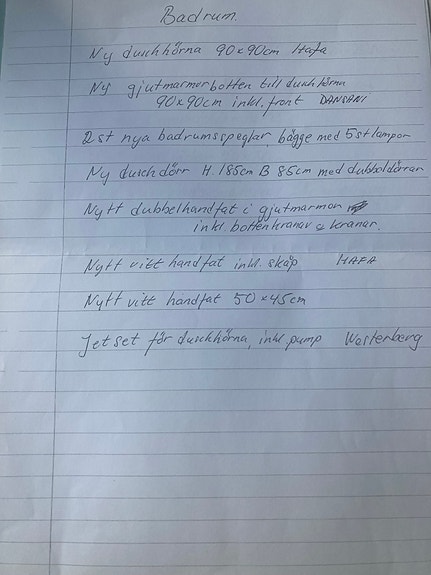 Badrum.
Ny duschhörna 90x90cm Hafa
Ny gjutmarmorbotten till duschhörna
90x90cm inkl. front DANSANI
2 st nya badrumsspeglar, bägge med 5 st lampor
Ny duschdörr H. 185cm B 85cm med dubbeldörrar
Nytt dubbelhandfat i gjutmarmor
inkl. bottenkranar & kranar.
Nytt vitt handfat inkl. skåp HAFA
Nytt vitt handfat 50x45cm
Jetset för duschhörna, inkl. pump Westerberg